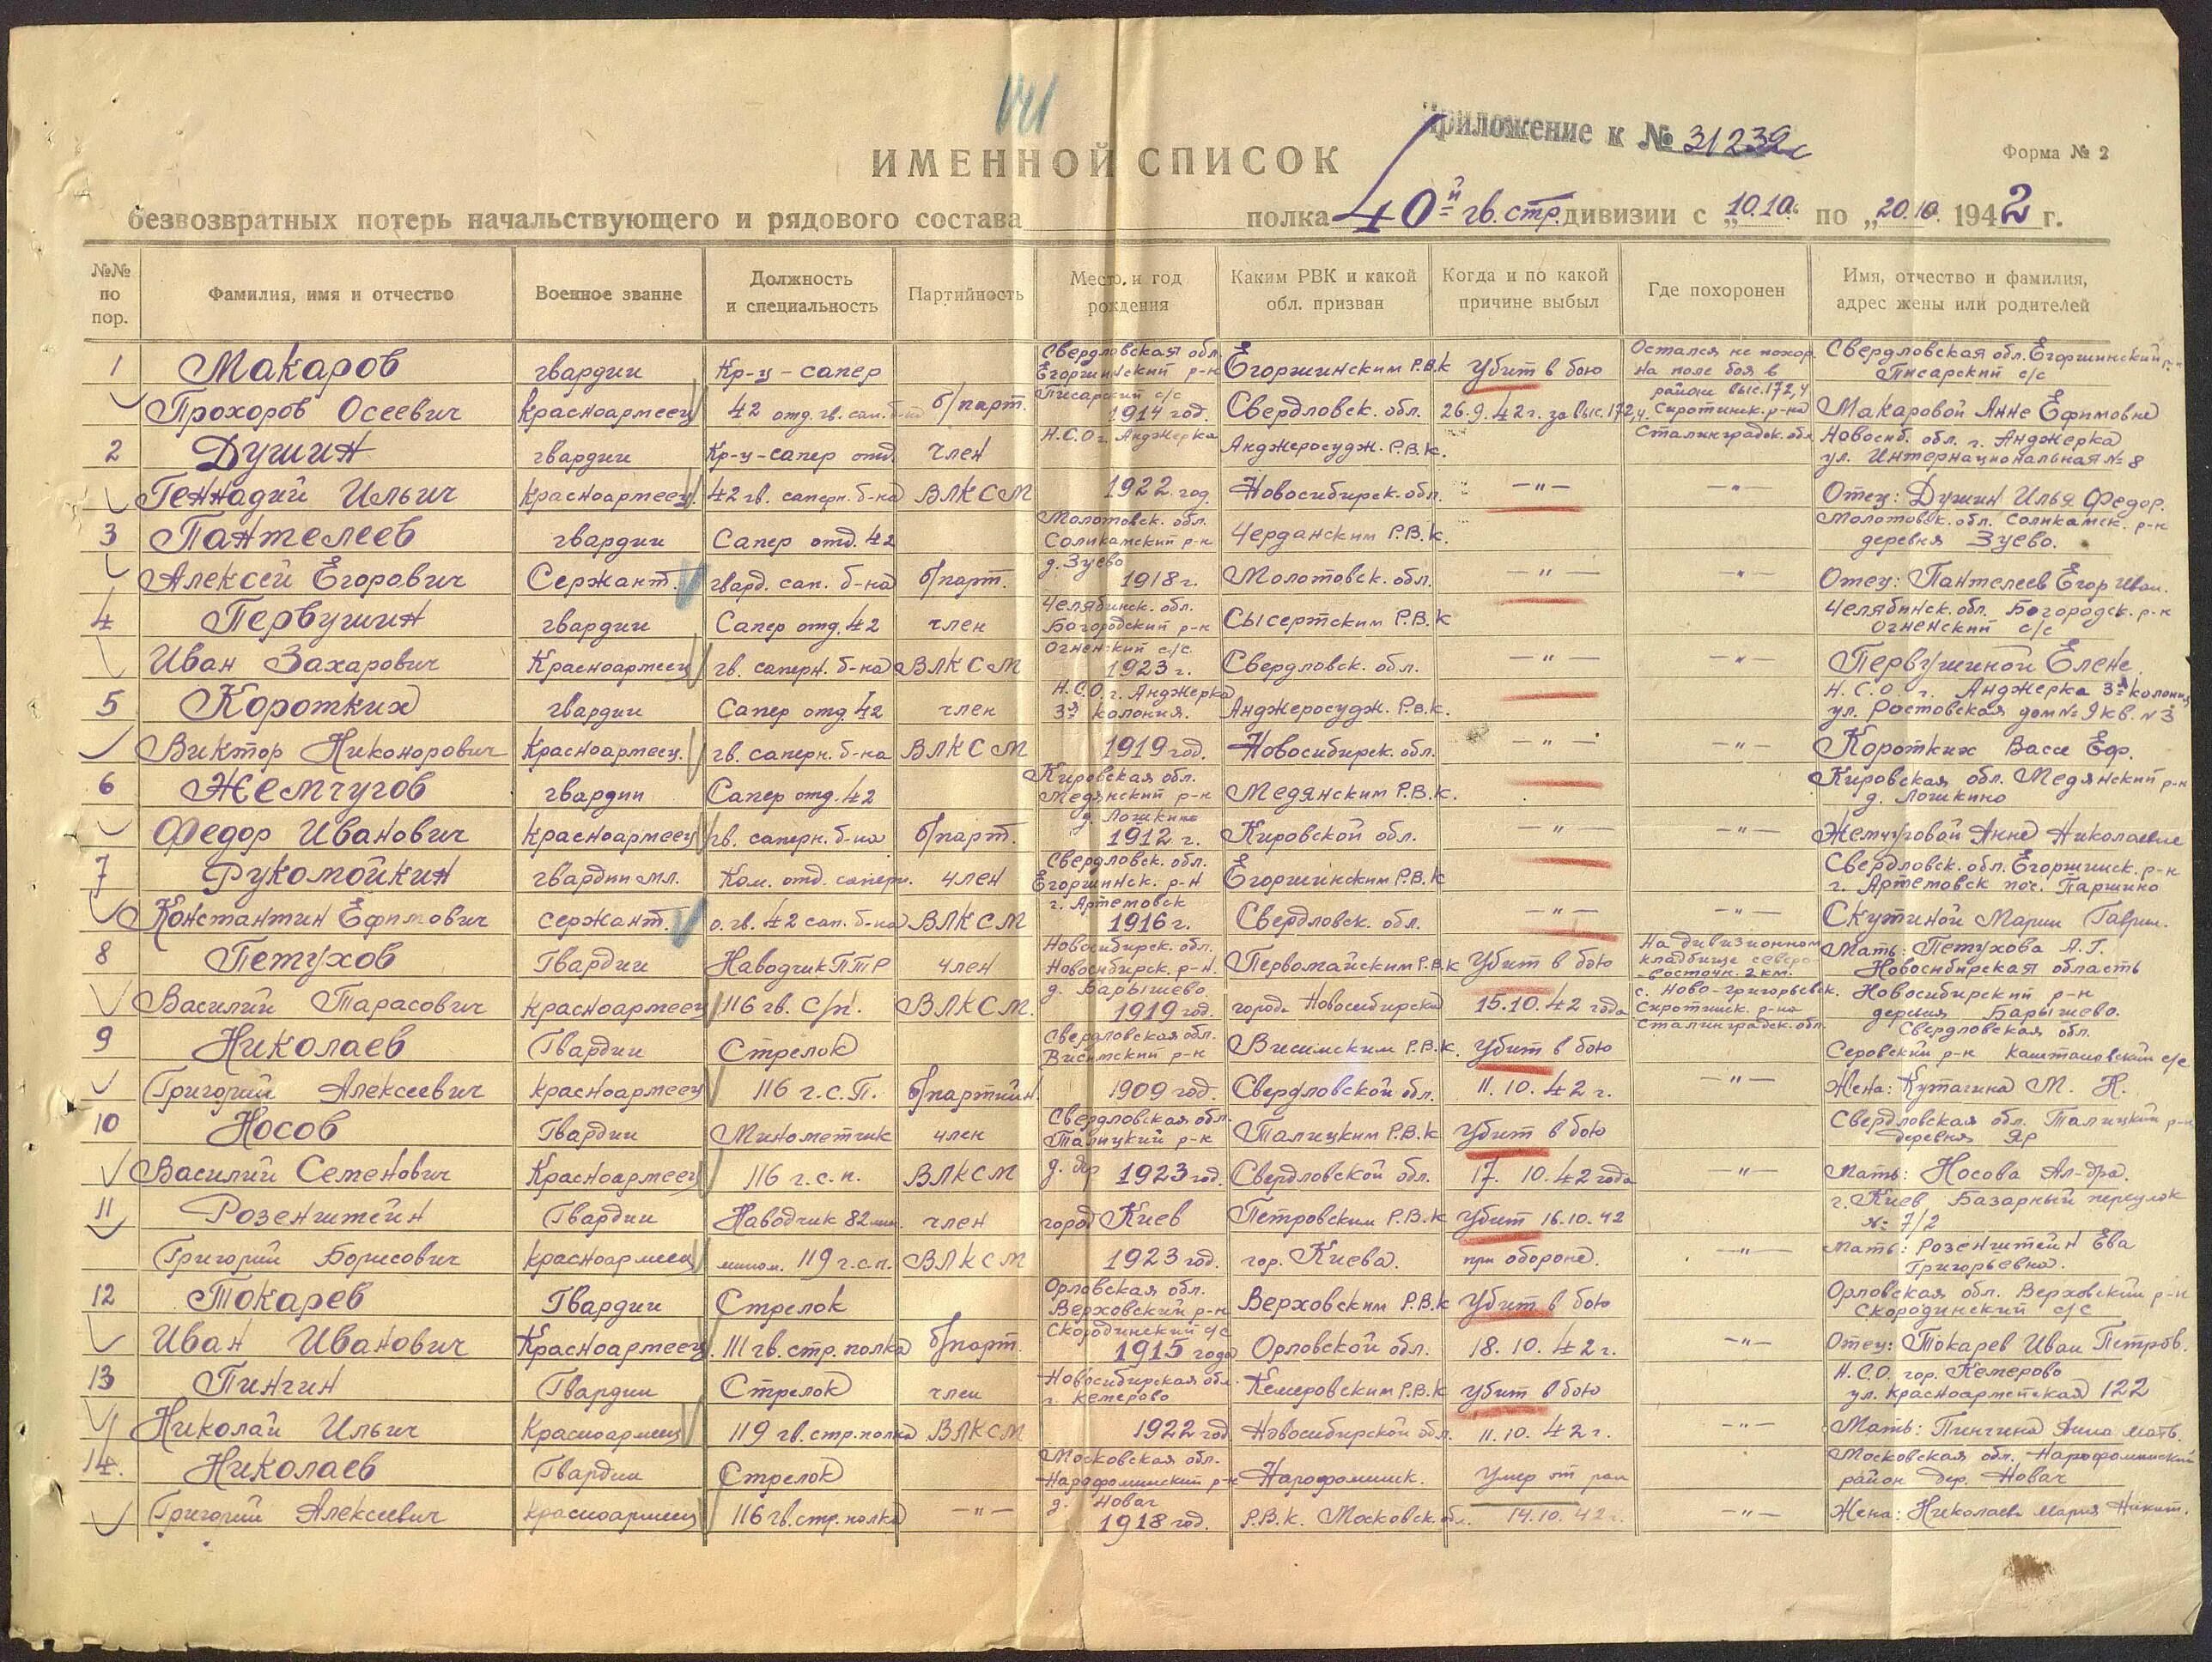 141
Приложение к № 31239с
ИМЕННОЙ СПИСОК
Форма № 2
безвозвратных потерь начальствующего и рядового состава полка 40й гв. стр. дивизии с „10.10. по „20.10. 1942 г.
№№ по пор.
Фамилия, имя и отчество
Военное звание
Должность и специальность
Партийность
Место и год рождения
Каким РВК и какой обл. призван
Когда и по какой причине выбыл
Где похоронен
Имя, отчество и фамилия, адрес жены или родителей
1 Макаров Прохоров Осеевич
гвардии красноармеец
Кр-ц-сапер 42 отд. гв. сап. б-на
б/парт.
Свердловская обл. Егоршинский р-н Писарский с/с 1914 год.
Егоршинским Р.В.К Свердловск. обл.
Убит в бою 26.9.42г. за выс. 172,4
Остался не похор. на поле боя в районе выс. 172,4 Сиротинск. р-на Сталинградск. обл.
Свердловская обл. Егоршинский р-н Писарский с/с Макаровой Анне Ефимовне
2 Душин Геннадий Ильич
гвардии красноармеец
Кр-ц-сапер отд. 42 гв. саперн. б-на
член ВЛКСМ
Н.С.О г. Анджерка 1922 год.
Анджеросудж. Р.В.К. Новосибирск. обл.
—"—
—"—
Новосиб. обл. г. Анджерка ул. Интернациональная № 8 Отец: Душин Илья Федор.
3 Пантелеев Алексей Егорович
гвардии Сержант.
Сапер отд. 42 гвард. сап. б-на
б/парт.
Молотовск. обл. Соликамский р-н д. Зуево 1918 г.
Черданским Р.В.К. Молотовск. обл.
—"—
—"—
Молотовск. обл. Соликамск. р-н деревня Зуево. Отец: Пантелеев Егор Иван.
4 Первушин Иван Захарович
гвардии Красноармеец
Сапер отд. 42 гв. саперн. б-на
член ВЛКСМ
Челябинск. обл. Богородский р-н Огненский с/с 1923 г.
Сысертским Р.В.К Свердловск. обл.
—"—
—"—
Челябинск. обл. Богородск. р-н Огненский с/с Первушиной Елене
5 Коротких Виктор Никонорович
гвардии Красноармеец.
Сапер отд. 42 гв. саперн. б-на
член ВЛКСМ
Н.С.О. г. Анджерка 3я колония. 1919 год.
Анджеросудж. Р.В.К. Новосибирск. обл.
—"—
—"—
Н.С.О. г. Анджерка 3я колония ул. Ростовская дом № 9 кв. № 3 Коротких Вассе Еф.
6 Жемчугов Федор Иванович
гвардии красноармеец
Сапер отд. 42 гв. саперн. б-на
б/парт.
Кировская обл. Медянский р-н д. Лошкино 1912 г.
Медянским Р.В.К. Кировской обл.
—"—
—"—
Кировская обл. Медянский р-н д. Лошкино Жемчуговой Анне Николаевне
7 Рукомойкин Константин Ефимович
гвардии мл. сержант.
Ком. отд. саперн. о. гв. 42 сап. б-на
член ВЛКСМ
Свердловск. обл. Егоршинск. р-н г. Артемовск 1916 г.
Егоршинским Р.В.К Свердловск. обл.
—"—
—"—
Свердловск. обл. Егоршинск. р-н г. Артемовск поч. Паршино Скутиной Марии Гаврил.
8 Петухов Василий Тарасович
Гвардии красноармеец
Наводчик ПТР 116 гв. с/п.
член ВЛКСМ.
Новосибирск. обл. Новосибирск. р-н. д. Барышево 1919 год.
Первомайским Р.В.К города Новосибирска
Убит в бою 15.10.42 года
На дивизионном кладбище северо-восточн. 2 км. с. Ново-Григорьевск. Сиротинск. р-на Сталинградск. обл.
Мать: Петухова А.Г. Новосибирская область Новосибирский р-н деревня Барышево.
9 Николаев Григорий Алексеевич
Гвардии красноармеец
Стрелок 116 г.с.п.
б/партийн.
Свердловская обл. Висимский р-н 1909 год.
Висимским Р.В.К. Свердловской обл.
Убит в бою 11.10.42 г.
—"—
Свердловская обл. Серовский р-н с/с Жена: Кутагина М. Н.
10 Носов Василий Семенович
Гвардии Красноармеец
Минометчик 116 г.с.п.
член ВЛКСМ
Свердловская обл. Талицкий р-н д. Яр 1923 год.
Талицким Р.В.К Свердловской обл.
Убит в бою 17.10.42 года
—"—
Свердловская обл. Талицкий р-н деревня Яр Мать: Носова Ал-дра.
11 Розенштейн Григорий Борисович
Гвардии красноармеец
Наводчик 82 мм. мином. 119 г.с.п.
член ВЛКСМ
город Киев 1923 год.
Петровским Р.В.К гор. Киева.
Убит 16.10.42 при обороне.
—"—
г. Киев Базарный переулок № 7/2 Мать: Розенштейн Ева Григорьевна.
12 Токарев Иван Иванович
Гвардии Красноармеец
Стрелок 111 гв. стр. полка
б/парт.
Орловская обл. Верховский р-н Скородинский с/с 1915 года
Верховским Р.В.К Орловской обл.
Убит в бою 18.10.42 г.
—"—
Орловская обл. Верховский р-н Скородинский с/с Отец: Токарев Иван Петров.
13 Пингин Николай Ильич
Гвардии Красноармеец
Стрелок 119 гв. стр. полка
член ВЛКСМ
Новосибирская обл. г. Кемерово 1922 год
Кемеровским Р.В.К Новосибирской обл.
Убит в бою 11.10.42 г.
—"—
Н.С.О. гор. Кемерово ул. Красноармейская 122 Мать: Пингина Анна Матв.
14. Николаев Григорий Алексеевич
Гвардии красноармеец
Стрелок 116 гв. стр. полка
—"—
Московская обл. Нарофоминский р-н д. Новая 1918 год.
Нарофоминск. Р.В.К. Московск. обл.
Умер от ран 14.10.42 г.
—"—
Московская обл. Нарофоминский район дер. Новая Жена: Николаева Мария Никит.